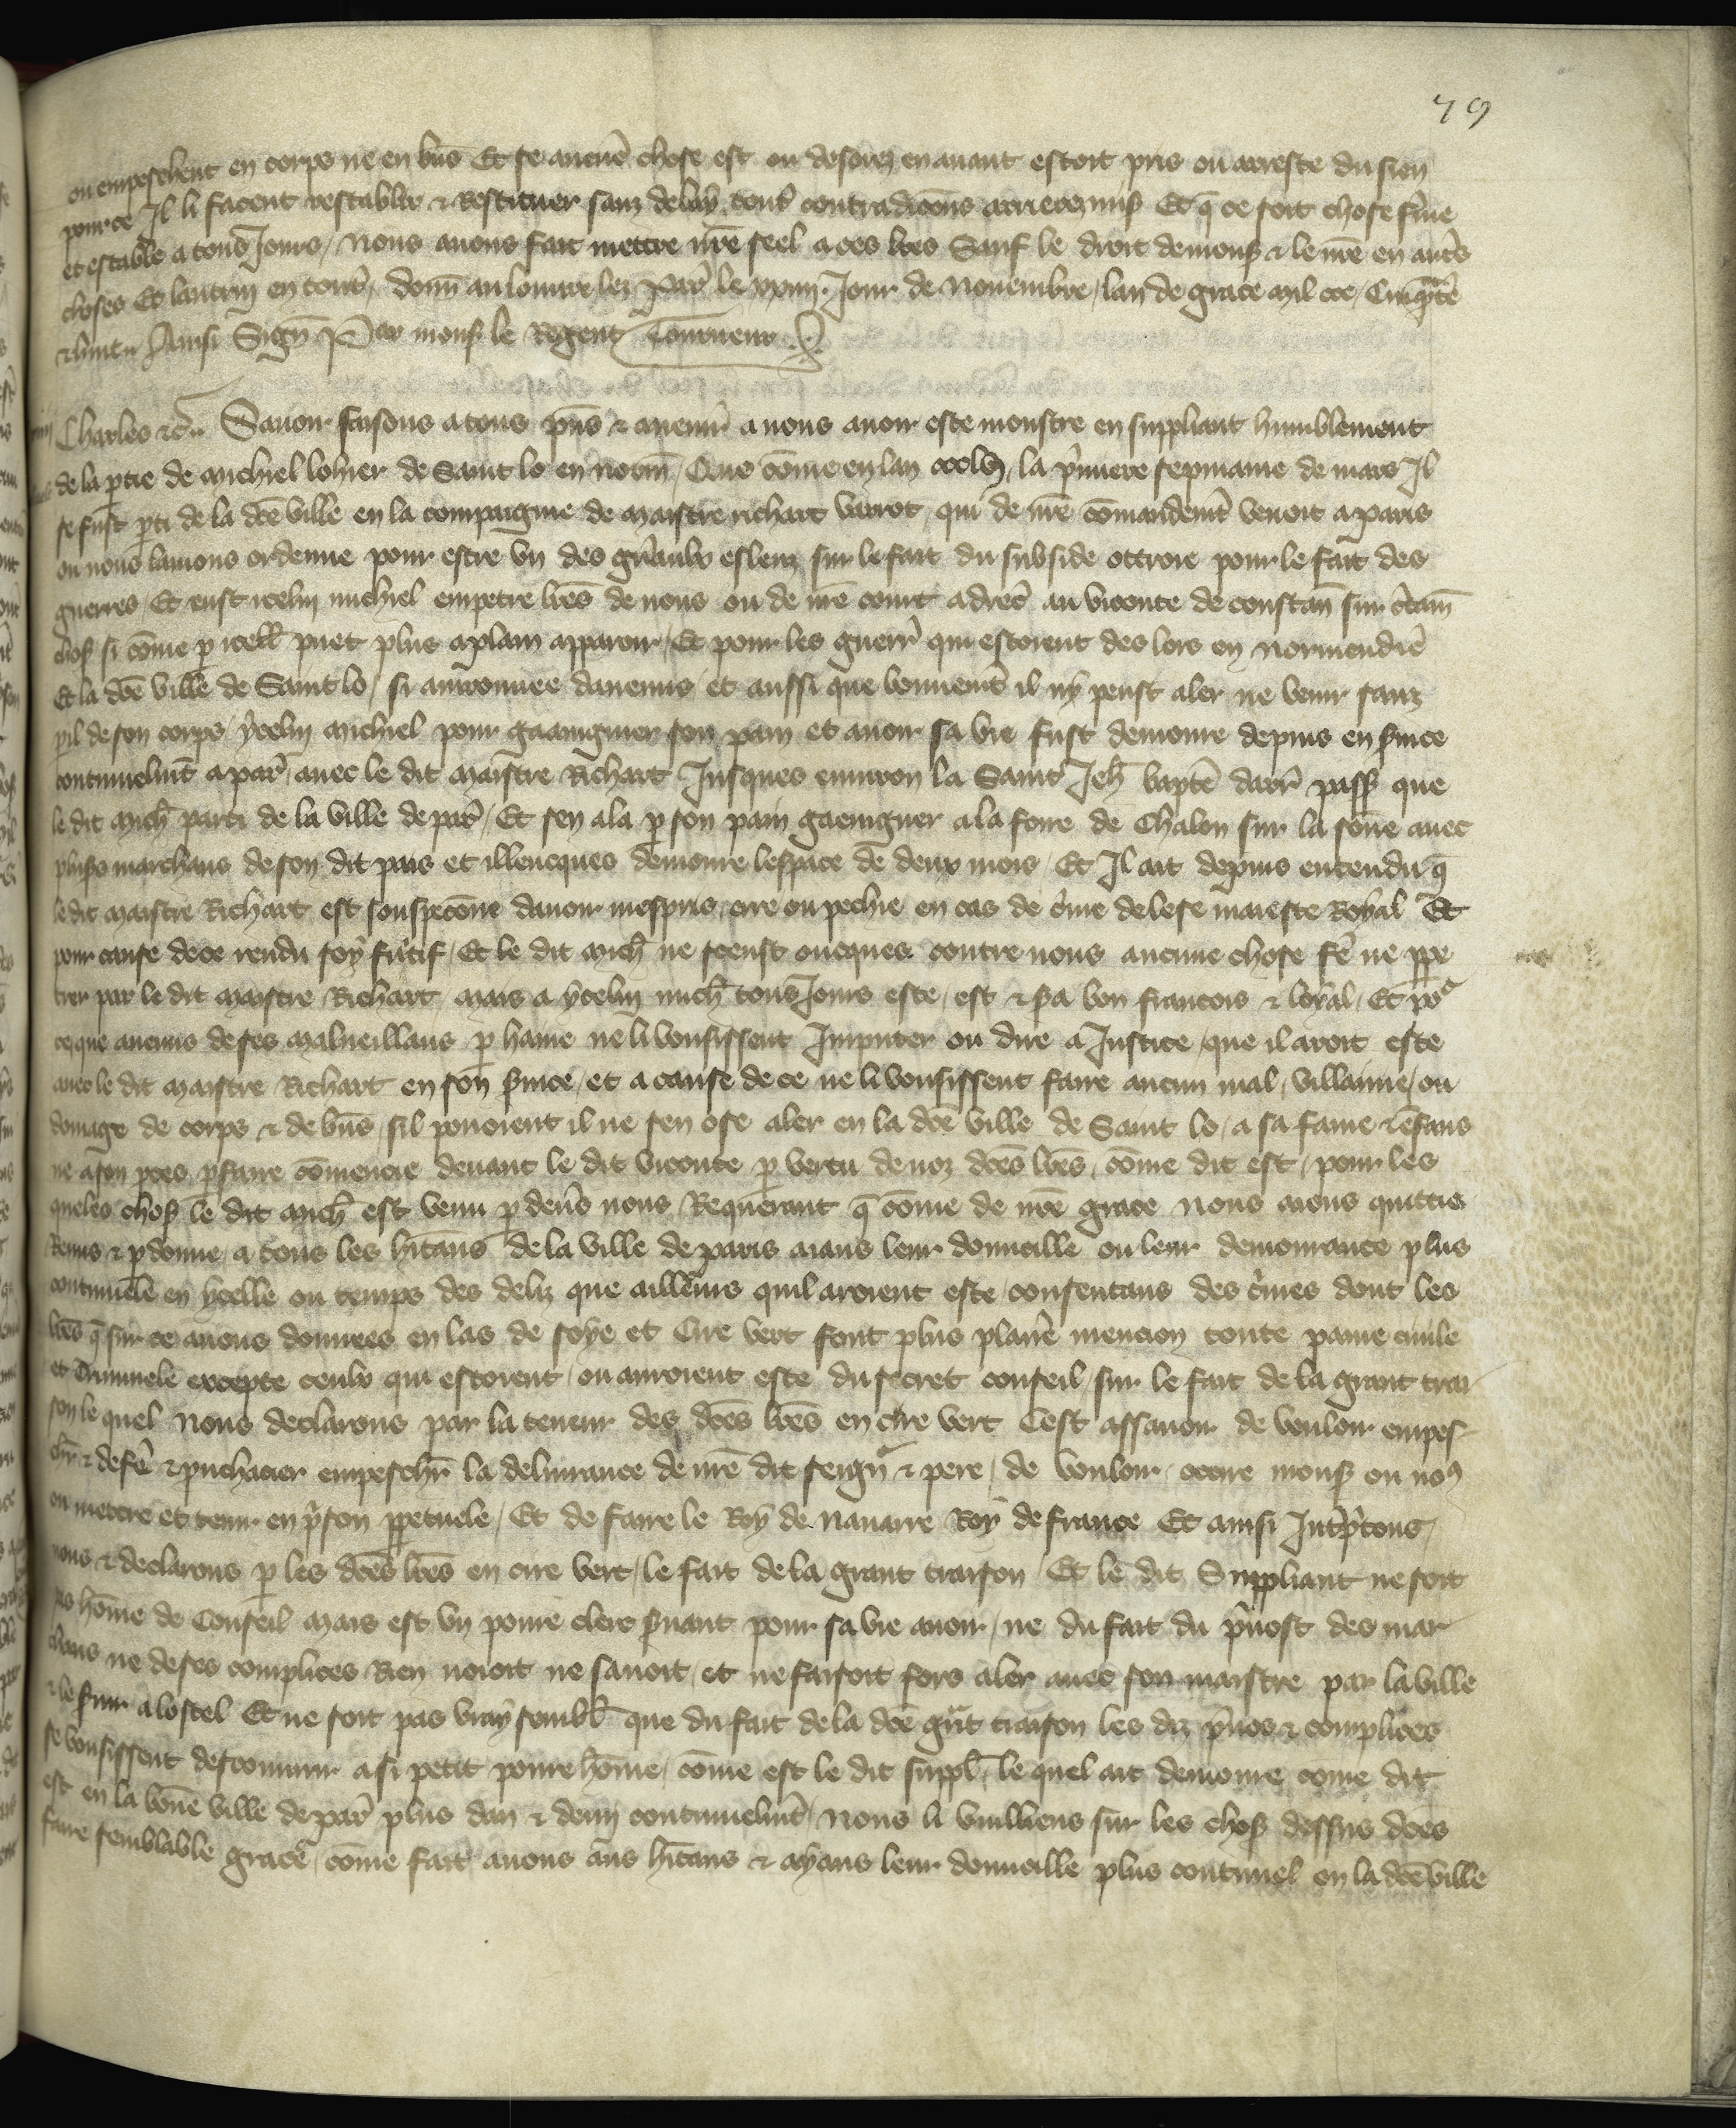 79
ou empeschent en corps ne en bn̄s Et se aucūe chose est ou desorez en auant estoit pris ou arreste du sien
pource Il li facent restablir & Restituer sanz delay tous contradicc̄ons arrieremis Et q̄ ce soit chose fˀme
et estable a tous Jours / nous auons fait mettre nr̄e seel a ces lr̄es Sauf le droit de monsˀ & le nr̄e en autˀs
choses Et lautruy en toutˀ / donn̄ au louure lez Parˀ le xxiiij. Jour de Nouembre / lan de grace mil ccc / Cinqᵃ̄te
& huit Ainsi Sign̄ Par monsˀ le Regent Tourneur
Charles &c̄ Sauoir faisons a tous pn̄s & auenirˀ a nous auoir este monstre en suppliant humblement
de la ptie de michiel lohier de Saint lo en norm̄ / Que cōme en lan ccclvij la pˀmiere sepmaine de mars Il
se fust pti de la dc̄e ville en la compaignie de maistre richart varrot qui de nr̄e cōmandemt̄ venoit a paris
ou nous lauions ordenne pour estre vn des gnˀaulx esleuz sur le fait du subside ottroie pour le fait des
guerres / Et eust icelui michiel empetre lr̄es de nous ou de nr̄e court adrecˀ au viconte de constan̄ sur cˀtain̄
chosˀ si cōme p icell̄ puet plus a plain apparoir / Et pour les guerrˀ qui estoient des lors en normendie
Et la dc̄e ville de Saint lo / si auironnee danemis et aussi que bonnemt̄ il ny peust aler ne venir sanz
pil de son corps / ycelui michiel pour gaaignier son pain et auoir sa vie fust demoure depuis en sˀuice
continuelmt̄ a parˀ auec le dit maistre Richart Jusques enuiron la Saint Jeh̄ bapt̄e darrˀ passˀ que
le dit mich̄ parti de la ville de parˀ / Et sen ala pˀ son pain gaeigner a la foire de Chalon sur la sone auec
plusˀs marchans de son dit pais et illeucques demoure lespace de deux mois / Et Il ait depuis entendu q̄
le dit maistre Richart est souspeconne dauoir mespris erre ou pechie en cas de cˀme de lese maieste Royal Et
pour cause de ce rendu soy fuitif / Et le dit mich̄ ne sceust oncques contre nous aucune chose fˀe ne ppe
trer par le dit maistre Richart / mais a ycelui mich̄ tousJours este / est & sˀa bon francois & loyal / Et pō
ce que aucuns de ses malueillans p haine ne li vousissent Imputer ou dire a Justice que il auoit este
auec le dit maistre Richart en son sˀuice / et a cause de ce ne li vousissent faire aucun mal / villainie / ou
domage de corps & de bn̄s sil pouoient il ne sen ose aler en la dc̄e ville de Saint lo / a sa fame & ēfans
ne a son pces pˀfaire cōmencie deuant le dit viconte p vertu de noz dc̄es lr̄es cōme dit est / pour les
queles chosˀ le dit mich̄ est venu p deuˀs nous Requerant q̄ cōme de nr̄e grace nous aions quittie
Remis & pdonne a tous les hītans de la ville de paris aians leur domicille ou leur demourance plus
continuele en ycelle ou temps des deliz que ailleurs quil auroient este consentans des cˀmes dont les
lr̄es q̄ sur ce auons donnees en las de soye et Cire vert font plus plaine mencion toute paine ciuile
et Criminele excepte ceulx qui estoient / ou auroient este du secret conseil / sur le fait de la grant trai
son le quel nous declarons par la teneur des dc̄es lr̄es en cire vert Cest assauoir de vouloir empes
chˀr & defˀe & puchacier empeschˀr la deliurance de nr̄e dit seign̄ & pere / de vouloir occire monsˀ ou noꝰ
ou mettre et tenir en pˀson ppetuele / Et de faire le Roy de nauarre Roy de france Et ainsi Jntˀpˀtons /
nous & declarons p les dc̄es lr̄es en cire vert / le fait de la grant traison / Et le dit Suppliant ne soit
pas hōme de Conseil mais est vn poure clerc sˀuant pour sa vie auoir / ne du fait du pˀuost des mar
chans ne de ses complices Rien nouoit ne sauoit / et ne faisoit fors aler auec son maistre par la ville
& le sˀuir a lostel Et ne soit pas vray sembl̄ que du fait de la dc̄e gūt traison les diz pˀuos & complices
se vousissent descouurir a si petit poure hōme / cōme est le dit suppl̄ / le quel ait demoure cōme dit
est en la bōne ville de parˀ plus dan & demi continuelmt̄ / nous li vuillions sur les chosˀ dessus dc̄es
faire semblable grace / cōme fait auons aus hītans & ayans leur domicille plus continuel en la dc̄e ville